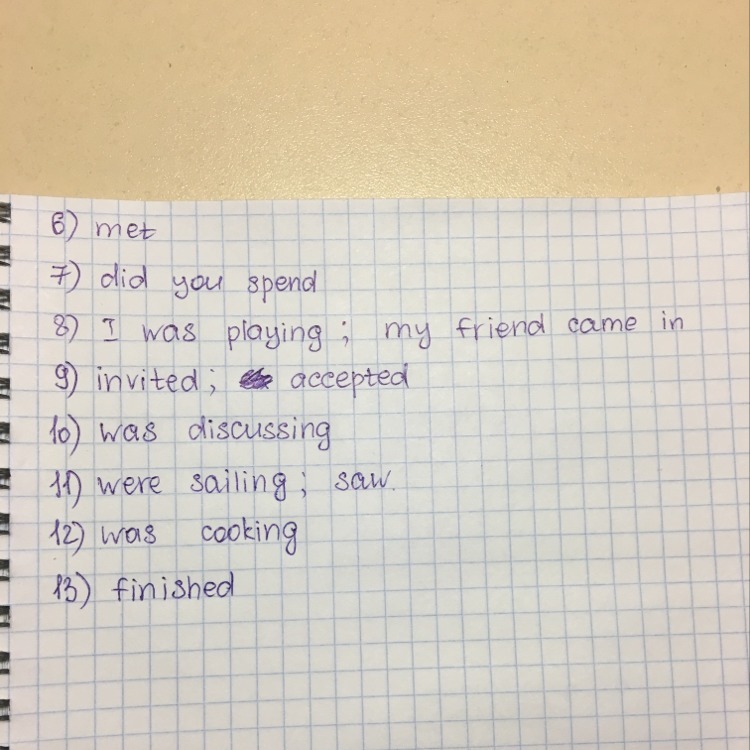 6) met
7) did you spend
8) I was playing; my friend came in
9) invited; accepted
10) was discussing
11) were sailing; saw.
12) was cooking
13) finished